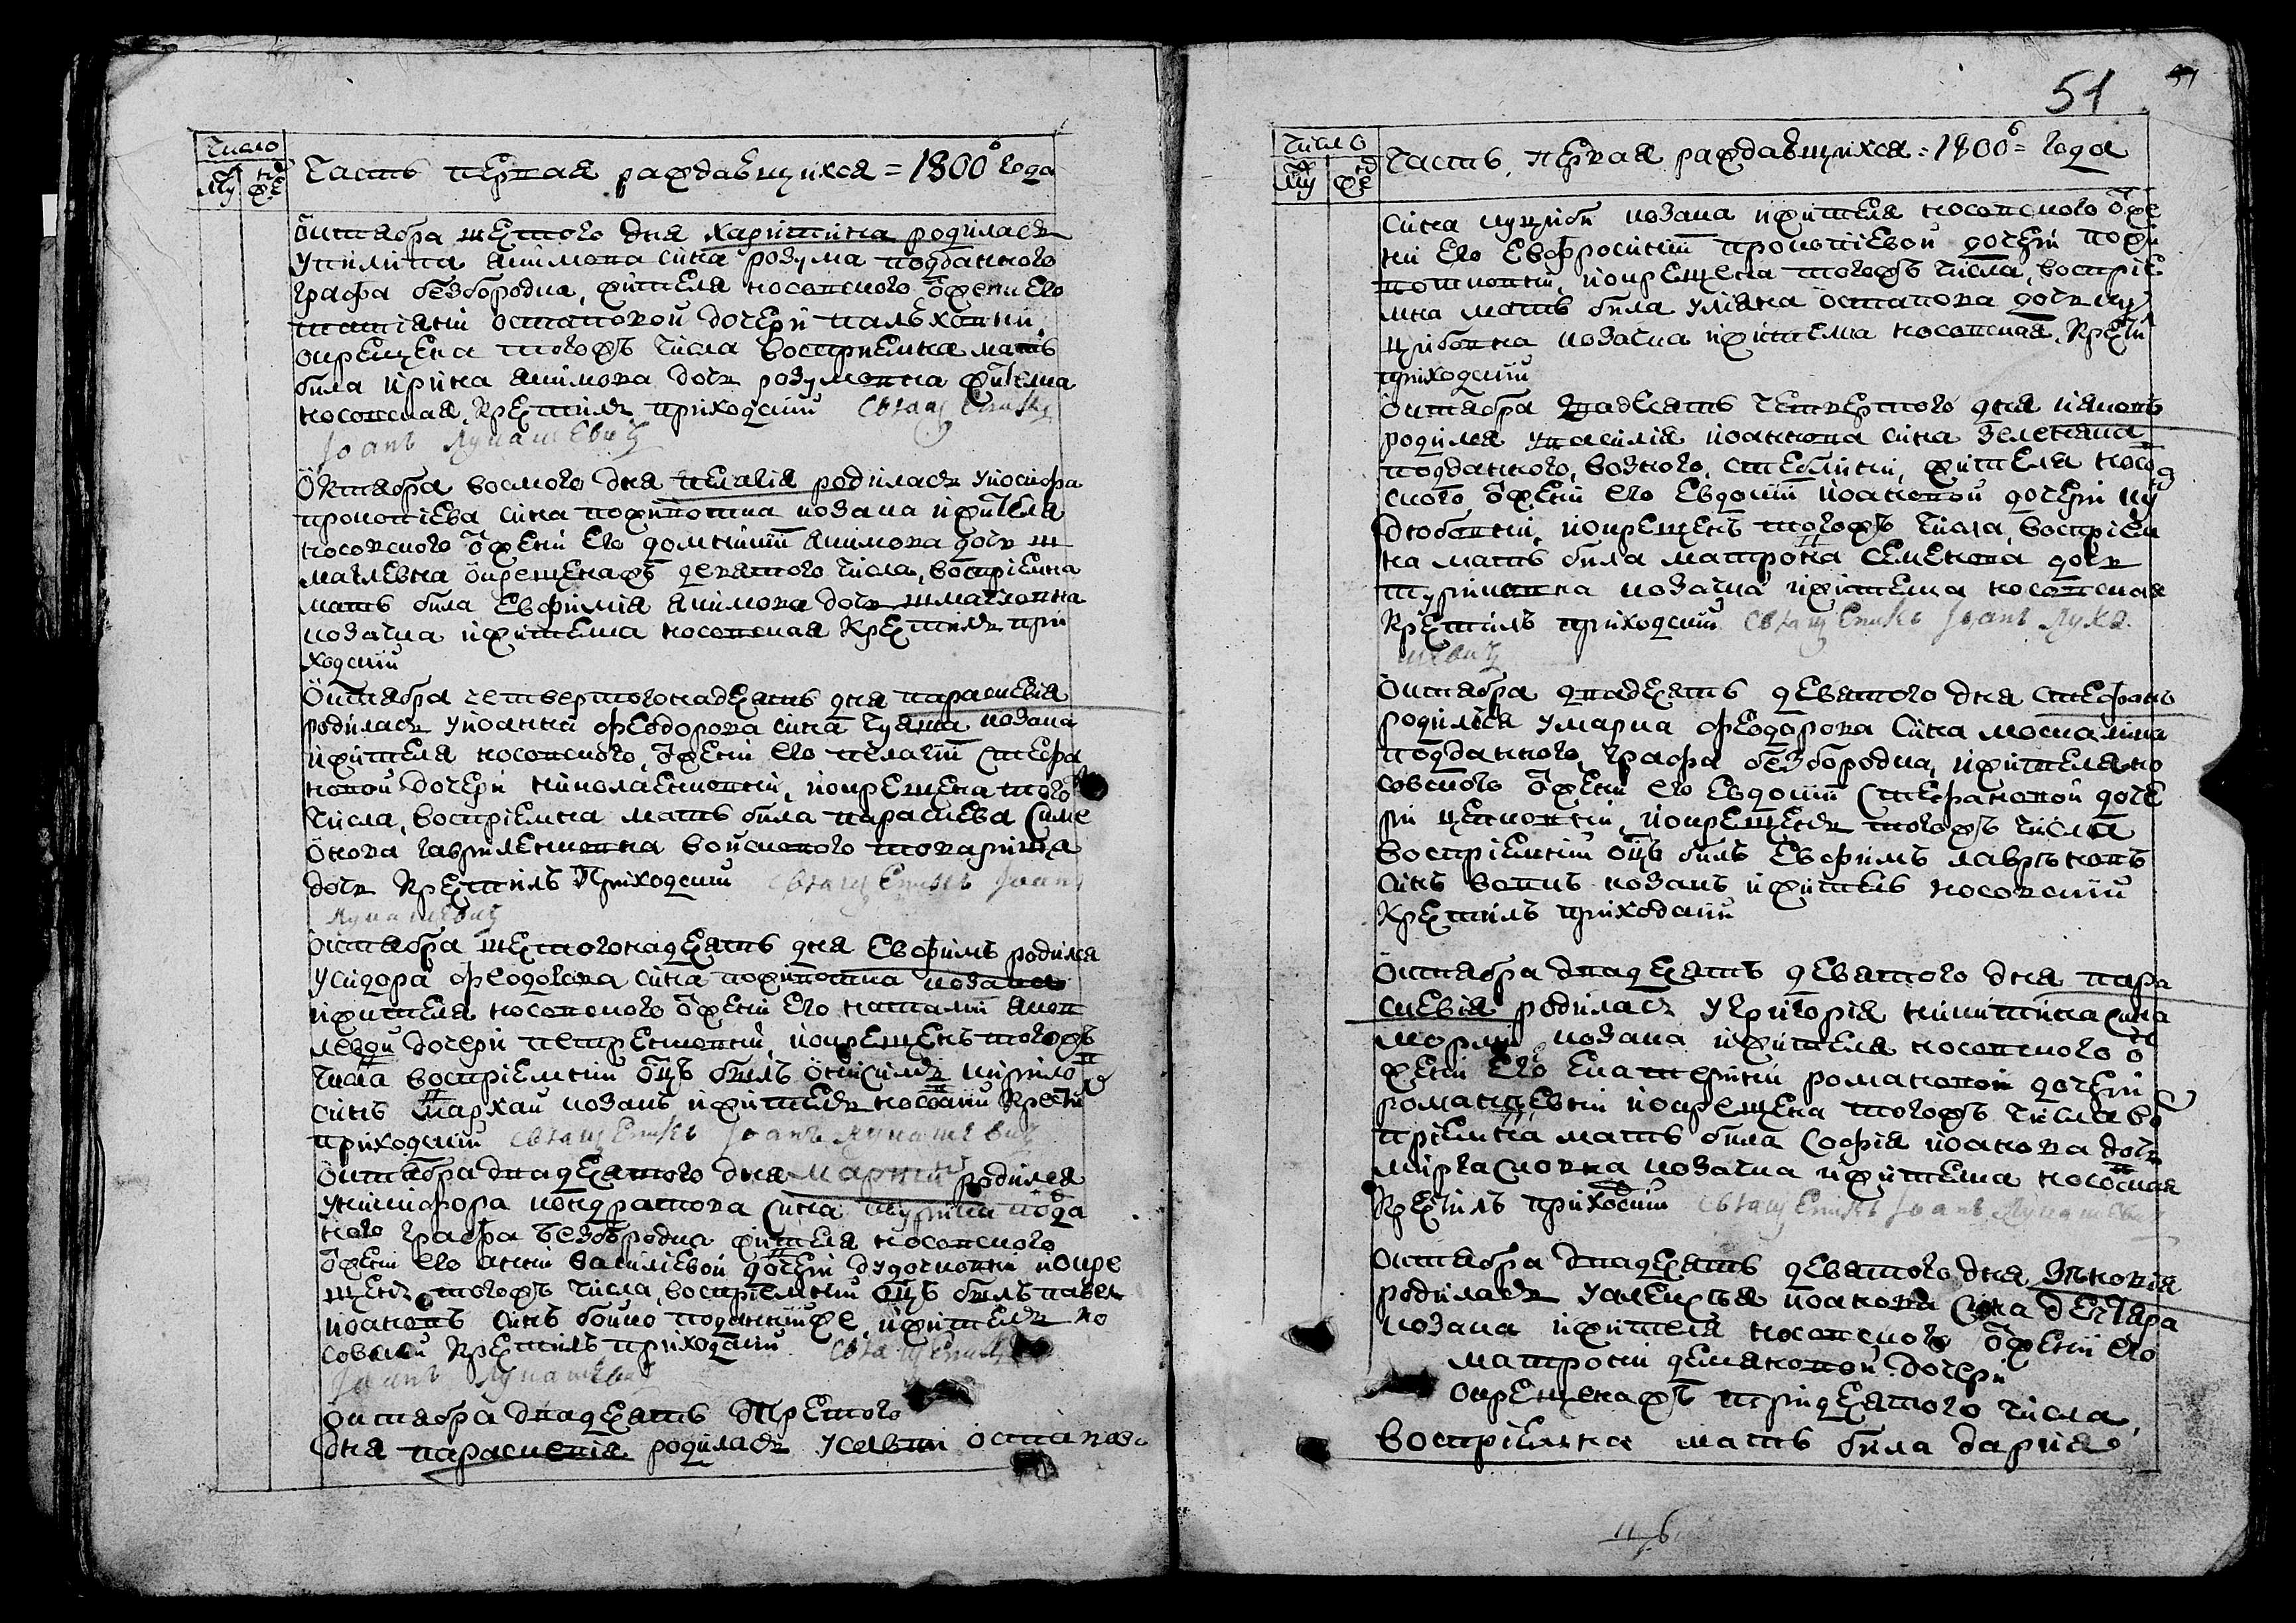 Число
Му
же
Часть первая раждавщихся = 1800го года
Октября шестого дня харитина родилась
у пилипа якимова сина розума подданного
графа безбородка, жителя носовского о жени его
татіяни остаповой дочери пальхов ни,
окрещена тогожъ числа воспріемна мать
била ирина якимова дочь розумовна жителка
носовская, Крестилъ приходскій Священникъ
Іоанъ Лукашевич
Октября восмого дня пелагія родилась у иосифа
прокопіева сина похи потка козака и жителя
носовского о жени его домникіи якимова дочь ш
маглевна окрещенажъ девятого числа, воспріемна
мать била Евфимія якимова дочь шмагловна
козачка и жителка носовская Крестилъ при
ходскій
Октября четвертогонадесять дня параскевія
родилась у иоанна феодорова сина козака
и жителя носовского, о жени его пелагіи стефа
новой дочери николаенковни, и окрещена тогожъ
числа, воспріемна мать била параскева симе
онова гавриленковна войскового товариша
дочь Крестилъ Приходскій Священникъ Іоанъ
Лукашевич
Октября шестогонадесять дня Евфимъ родился
у сидора феодорова сина похи потка козака
и жителя носовского о жени его наталіи яков
левой дочери петренковни, и окрещенъ тогожъ
числа воспріемній оцъ билъ онисимъ кирило
синъ козакъ и житель носовскій Крестил
приходскій Священникъ Іоанъ Лукашевич
Октября двадесятого дня Мартинъ родился
у никифора кондратова сина турика подда
ного графа Безбородка жителя носовского
о жени его анни василіевой дочери дудочковни и окре
щенъ тогожъ числа, воспріемній оцъ билъ павелъ
иоановъ синъ бойко подданній же, и житель но
совскій Крестилъ приходскій Священникъ
Іоанъ Лукашевич
Октября двадесять третого
дня параскевія родилась у савви остапова
51
Число
Му
же
Часть, первая раждавщихся = 1800го = года
сина куцриби козака и жителя носовского о же
ни его Евфросиніи прокопіевой дочери похи
потковни, и окрещена тогожъ числа, воспріе
мна мать била уліяна остапова дочь ку
црибовна козачка и жителка носовская, Крестил
приходскій
Октября двадесять четвертого дня иаковъ
родился у василія иоаннова сина зеленяка
подданного, возного, стеблини, жителя носов
ского о жени его Евдокіи иоановой дочери
дзюбовни, и окрещенъ тогожъ числа, воспріем
на мать била матрона семенова дочь
туриковна козачка и жителка носовская
Крестилъ приходскій Священникъ Іоанъ Лука
шевич
Октября двадесять девятого дня стефанъ
родился у марка феодорова сина москалика
подданного, графа безбородка, и жителя но
совского о жени его Евдокіи стефановой доче
ри цепковни, и окрещенъ тогожъ числа
воспріемній оцъ билъ Евфимъ лаврѣновъ
синъ вовкъ козакъ и житель носовскій
Крестилъ приходскій
Октября двадесять девятого дня пара
скевія родилась у григорія никитина сина
козака и жителя носовского о
жени его Екатерини романовой дочери
романцевни и окрещена тогожъ числа во
пріемна мать била софія иоанова дочь
козачка и жителка носовская
Крестилъ приходскій Священникъ Іоанъ Лукашевич
Октября двадесять девятого дня Зѣновія
родилась у алексѣя иоанова сина
козака и жителя носовского о жени его
матрони демяновой дочери
окрещенажъ тридесятого числа
воспріемна мать била дарія